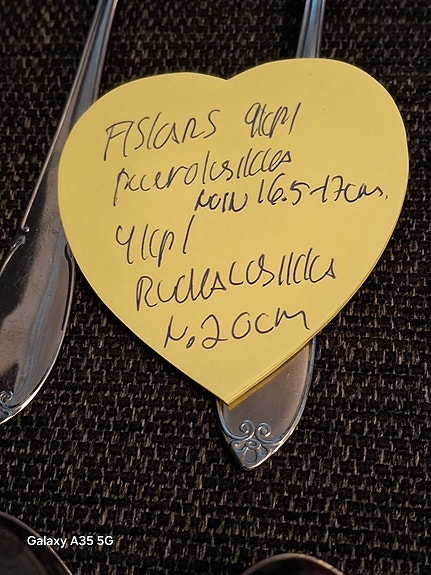 FISKARS 9kpl
pikkurolusikkaa
noin 16.5-17cm.
4kpl
Ruokalusikkaa
n. 20cm
Galaxy A35 5G